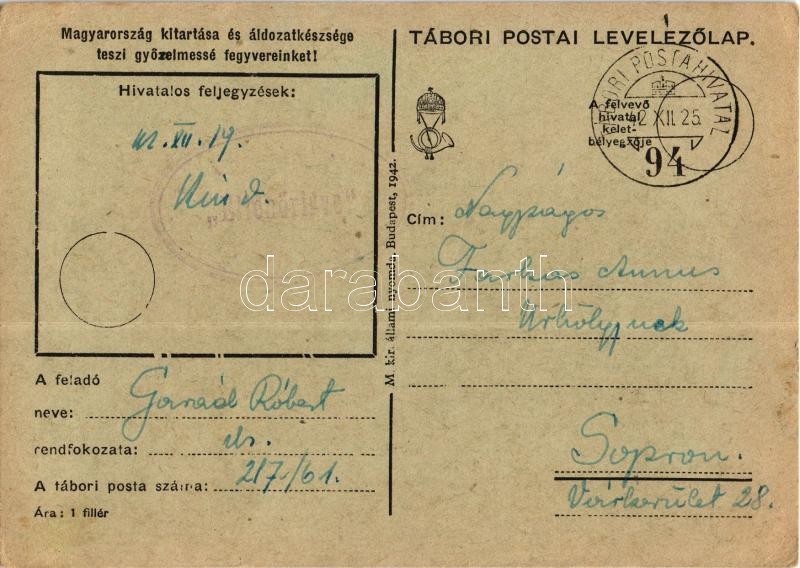 Magyarország kitartása és áldozatkészsége
teszi győzelmessé fegyvereinket!
Hivatalos feljegyzések:
42. XII. 19.
"Ellenőrizve"
TÁBORI POSTAI LEVELEZŐLAP.
TÁBORI POSTAHIVATAL
A felvevő
hivatal
kelet-
bélyegzője
42 XII. 25.
94
M. kir. állami nyomda, Budapest, 1942.
Cím: Nagyságos
Farkas Annus
Úrhölgynek
Sopron.
Várkerület 28.
darabanth
A feladó
neve: Garád Róbert
rendfokozata:
A tábori posta száma: 217/61.
Ára: 1 fillér